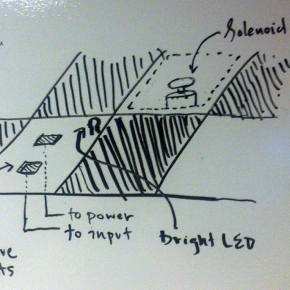 Solenoid
R
to power
to input
bright LED